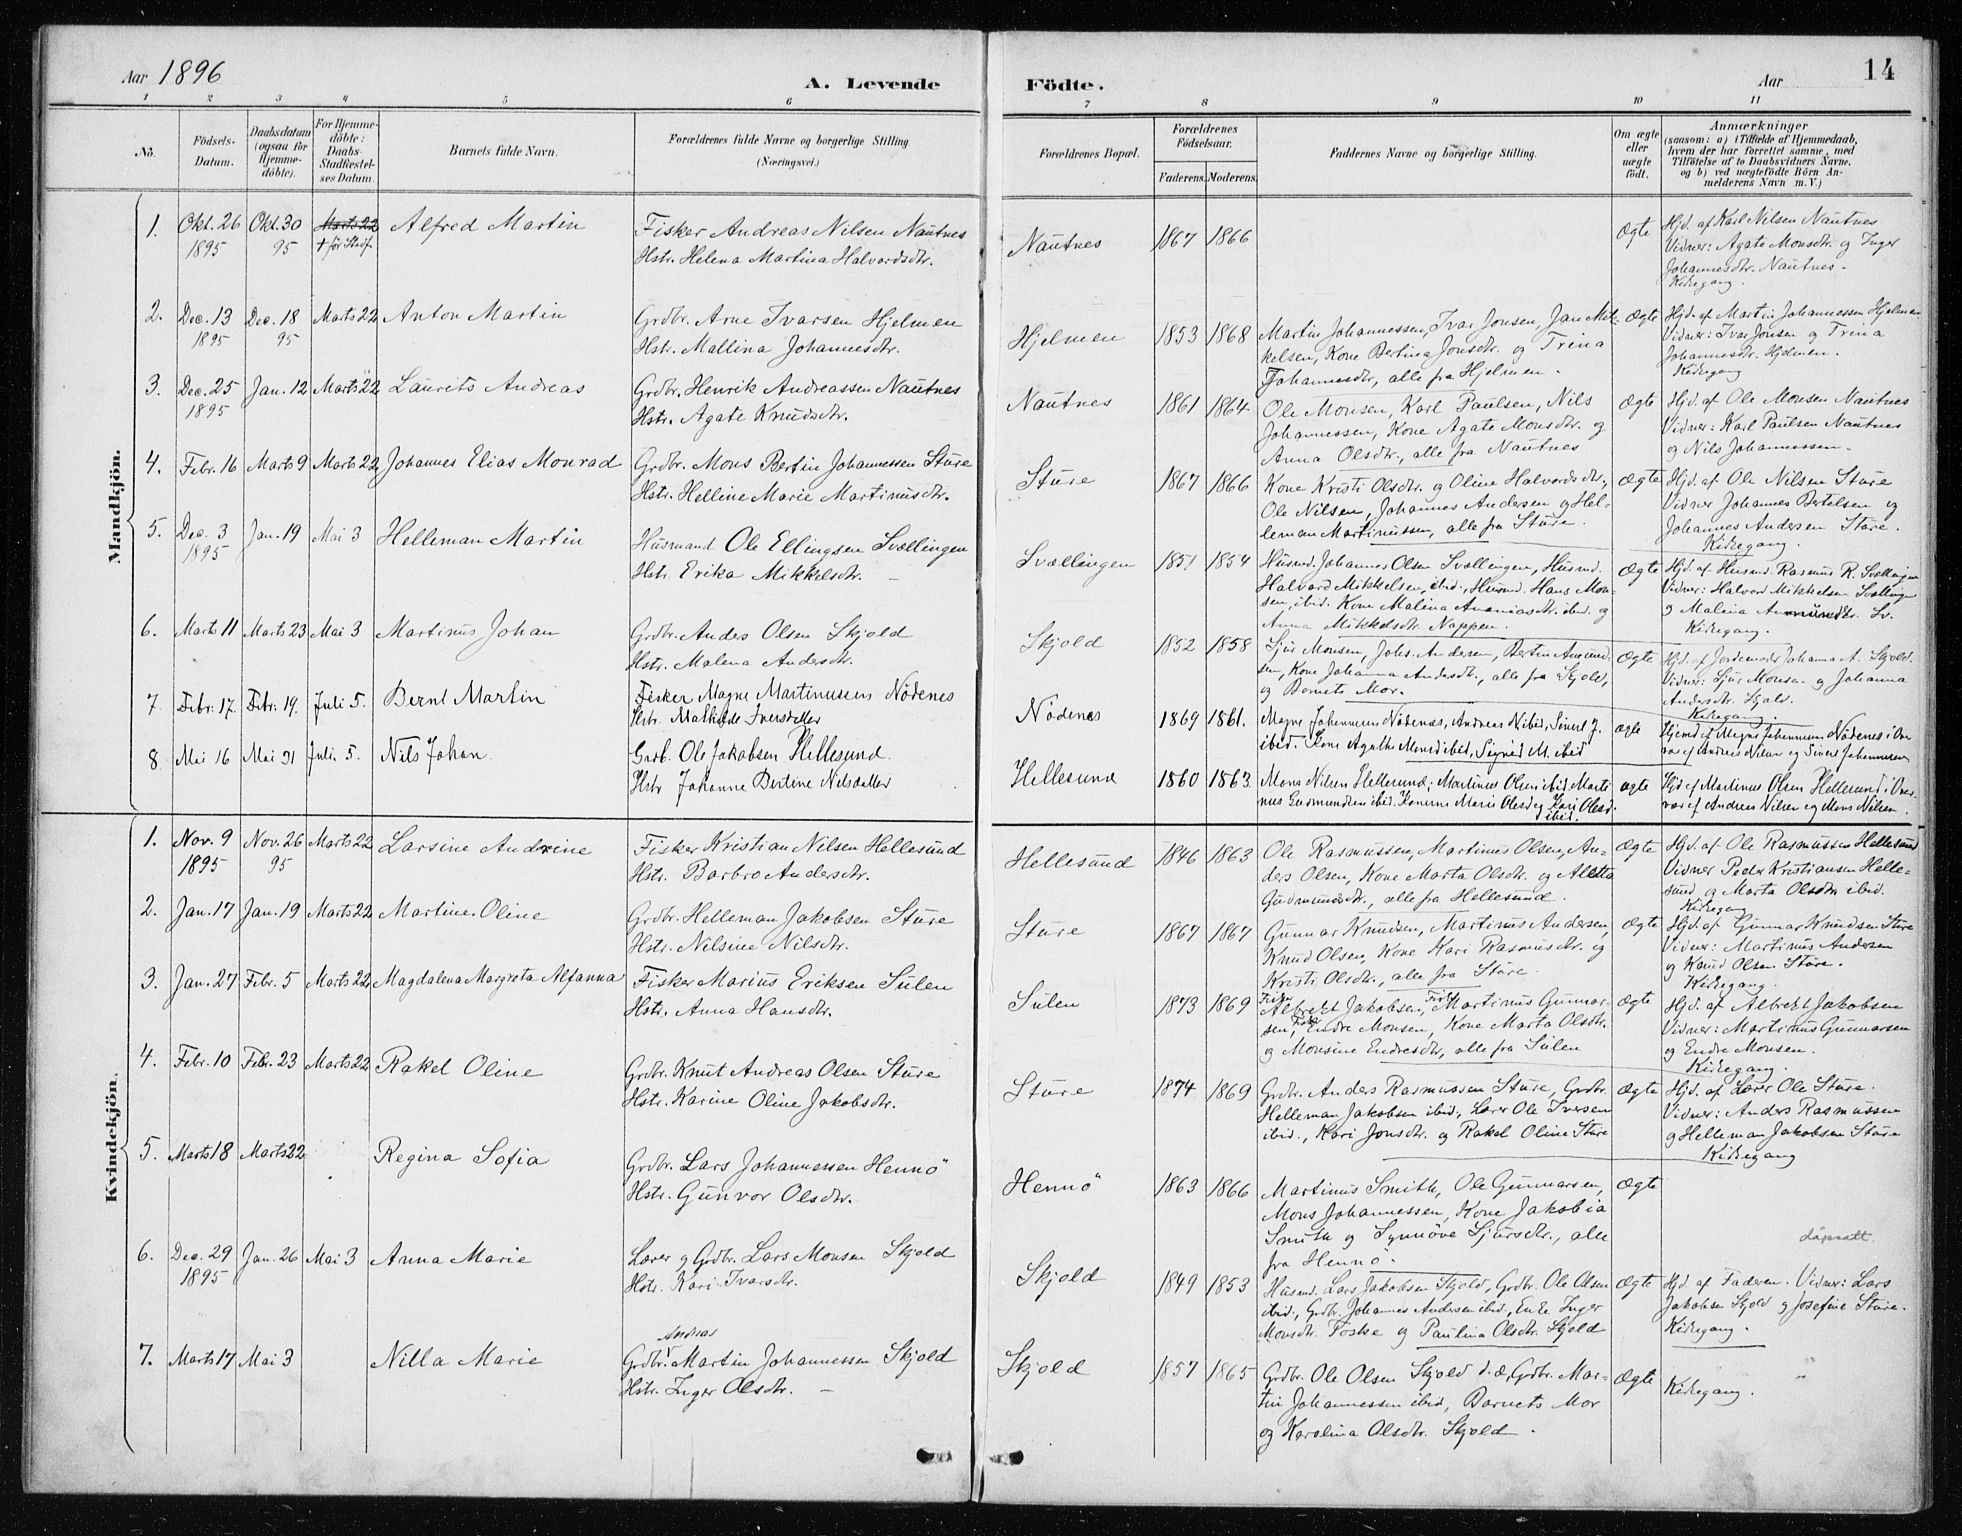 Aar 1896
A. Levende
Födte.
Aar
14
1 2 3 4 5 6 7 8 9 10 11
No.
Födsels-
Datum.
Daabsdatum
(ogsaa for
Hjemme-
döbte).
For Hjemme-
döbte:
Daabs-
Stadfæstel-
ses Datum.
Barnets fulde Navn.
Forældrenes fulde Navne og borgerlige Stilling
(Næringsvei.)
Forældrenes Bopæl.
Forældrenes
Födselsaar.
Faderens. Moderens.
Faddernes Navne og borgerlige Stilling.
Om ægte
eller
uægte
födt.
Anmærkninger
(saasom: a) i Tilfælde af Hjemmedaab,
hvem der har forrettet samme, med
Tilföielse af to Daabsvidners Navne,
og b) ved uægtefödte Börn An-
melderens Navn m. V.)
Mandkjön.
1. Okt. 26 1895 Okt. 30 95 Marts 22 † før Stadf. Alfred Martin
Fisker Andreas Nilsen Nautnes
Hstr. Helena Martina Halvordsdtr.
Nautnes 1867 1866 Ægte
Hjd. af Karl Nilsen Nautnes
Vidner: Agate Monsdtr. og Inger
Johannesdtr. Nautnes.
Kirkegang.
2. Dec. 13 1895 Dec. 18 95 Marts 22 Anton Martin
Grdbr. Arne Ivarsen Hjelmen
Hstr. Mallina Johannesdtr.
Hjelmen 1853 1868
Martin Johannessen, Ivar Jonsen, Jan Mik-
kelsen, Kone Bertina Jonsdtr. og Trina
Johannesdtr., alle fra Hjelmen.
Ægte
Hjd. af Martin Johannessen Hjelmen
Vidner: Ivar Jonsen og Trina
Johannesdtr. Hjelmen.
Kirkegang
3. Dec. 25 1895 Jan. 12 Marts 22 Laurits Andreas
Grdbr. Henrik Andreassen Nautnes
Hstr. Agate Knudsdtr.
Nautnes 1861 1864
Ole Monsen, Karl Paulsen, Nils
Johannessen, Kone Agate Monsdtr. og
Anna Olsdtr., alle fra Nautnes
Ægte
Hjd. af Ole Monsen Nautnes
Vidner: Karl Paulsen Nautnes
og Nils Johannessen.
4. Febr. 16 Marts 9 Marts 22 Johannes Elias Monrad
Grdbr. Mons Bertin Johannessen Sture
Hstr. Helline Marie Martinusdtr.
Sture 1867 1866
Kone Kristi Olsdtr. og Oline Halvordsdtr.,
Ole Nilsen, Johannes Andersen og Hel-
leman Martinussen, alle fra Sture.
Ægte
Hjd. af Ole Nilsen Sture
Vidner Johannes Bertelsen og
Johannes Andersen Sture.
Kirkegang.
5. Dec. 3 1895 Jan. 19 Mai 3 Helleman Martin
Husmand Ole Ellingsen Svællingen
Hstr. Erika Mikkelsdtr.
Svællingen 1851 1854
Husmd. Johannes Olsen Svællingen, Husmd.
Halvard Mikkelsen, ibid., Husmd. Hans Mon-
sen, ibid. Kone Malina Ananiasdtr. ibid. og
Anna Mikkelsdtr. Nappen.
Ægte
Hjd. af Husmd. Rasmus R. Svællingen
Vidner: Halvord Mikkelsen Svællingen
og Malina Sv.
Kirkegang.
6. Marts 11 Marts 23 Mai 3 Martinus Johan
Grdbr. Anders Olsen Skjold
Hstr. Malena Andersdtr.
Skjold 1852 1858
Sjur Monsen, Johs. Andersen, Bertin Amund-
sen, Kone Johanna Andersdtr., alle fra Skjold,
og Barnets Mor.
Ægte
Hjd. af Jordemoder Johanna A. Skjold.
Vidner: Sjur Monsen og Johanna
Andersdtr. Skjold.
Kirkegang.
7. Febr. 17. Febr. 19. Juli 5. Bernt Martin
Fisker Magne Martinussen Nödenes
Hstr. Mathilde Iversdatter
Nödenes 1869 1861.
Magne Johannesen Nödenæs, Andreas N. ibid, Sivert J.
ibid. Kone Agathe Monsd ibid, Sigrid M. ibid
ægte
Hjemd af Magne Johannesen Nödenes i Over-
vær af Andreas Nilsen og Sivert Johannesen
8. Mai 16 Mai 31 Juli 5. Nils Johan
Grdb. Ole Jakobsen Hellesund.
Hstr Johanne Bertine Nilsdatter
Hellesund 1860 1863.
Mons Nilsen Hellesund; Martinus Olsen ibid. Marti-
nus Gudmundsen ibid. Konerne Marie Olsd og Kari Olsd.
ibid.
ægte
Hjd af Martinus Olsen Hellesund i Over-
vær af Andreas Nilsen og Mons Nilsen.
Kvindekjön.
1. Nov. 9 1895 Nov. 26 95 Marts 22 Larsine Andrine
Fisker Kristian Nilsen Hellesund
Hstr. Barbro Andersdtr.
Hellesund 1846 1863
Ole Rasmussen, Martinus Olsen, An-
ders Olsen, Kone Marta Olsdtr. og Aletta
Gudmundsdtr., alle fra Hellesund.
Ægte
Hjd. af Ole Rasmussen Hellesund
Vidner Peder Kristiansen Helle-
sund og Marta Olsdtr ibid.
Kirkegang
2. Jan. 17 Jan. 19 Marts 22 Martine Oline
Grdbr. Helleman Jakobsen Sture
Hstr. Nilsine Nilsdtr.
Sture 1867 1867
Gunnar Knudsen, Martinus Andersen,
Knud Olsen, Kone Kari Rasmusdtr. og
Kristi Olsdtr., alle fra Sture.
Ægte
Hjd. af Gunnar Knudsen Sture
Vidner: Martinus Andersen
og Knud Olsen Sture.
Kirkegang.
3. Jan. 27 Febr. 5 Marts 22 Magdalena Margreta Alfanna
Fisker Marius Eriksen Sulen
Hstr. Anna Hansdtr.
Sulen 1873 1869
Fisker Albrekt Jakobsen, Fisker Martinus Gunnar-
sen, Fisker Endre Monsen, Kone Marta Olsdtr.
og Monsine Endresdtr, alle fra Sulen
Ægte
Hjd. af Albrekt Jakobsen
Vidner: Martinus Gunnarsen
og Endre Monsen.
Kirkegang.
4. Febr. 10 Febr. 23 Marts 22 Rakel Oline
Grdbr. Knut Andreas Olsen Sture
Hstr. Karine Oline Jakobsdtr.
Sture 1874 1869
Grdbr. Anders Rasmussen Sture, Grdbr.
Helleman Jakobsen ibid., Lærer Ole Iversen
ibid., Kari Jonsdtr. og Rakel Oline Sture
Ægte
Hjd. af Lærer Ole Sture.
Vidner: Anders Rasmussen
og Helleman Jakobsen Sture
Kirkegang
5. Marts 18 Marts 22 Regina Sofia
Grdbr. Lars Johannessen Hennö
Hstr. Gunvor Olsdtr.
Hennö 1863 1866
Martinus Smith, Ole Gunnarsen,
Mons Johannessen, Kone Jakobia
Smith og Synnöve Sjursdtr., alle
fra Hennö.
Ægte
6. Dec. 29 1895 Jan. 26 Mai 3 Anna Marie
Lærer og Grdbr. Lars Monsen Skjold
Hstr. Kari Ivarsdtr.
Skjold 1849 1853
Husmd. Lars Jakobsen Skjold, Grdbr. Ole Olsen
ibid., Grdbr. Johannes Andersen ibid., Enke Inger
Monsdtr. Foske og Paulina Olsdtr. Skjold
Ægte
dåpsatt.
Hjd. af Faderen. Vidner: Lars
Jakobsen Skjold og Josefine Sture.
Kirkegang.
7. Marts 17 Mai 3 Nilla Marie
Andreas
Grdbr. Martin Johannessen Skjold
Hstr. Inger Olsdtr.
Skjold 1857 1865
Grdbr. Ole Olsen Skjold d. æ, Grdbr. Mar-
tin Johannessen ibid., Barnets Mor
og Karolina Olsdtr. Skjold.
Ægte
Kirkegang. "